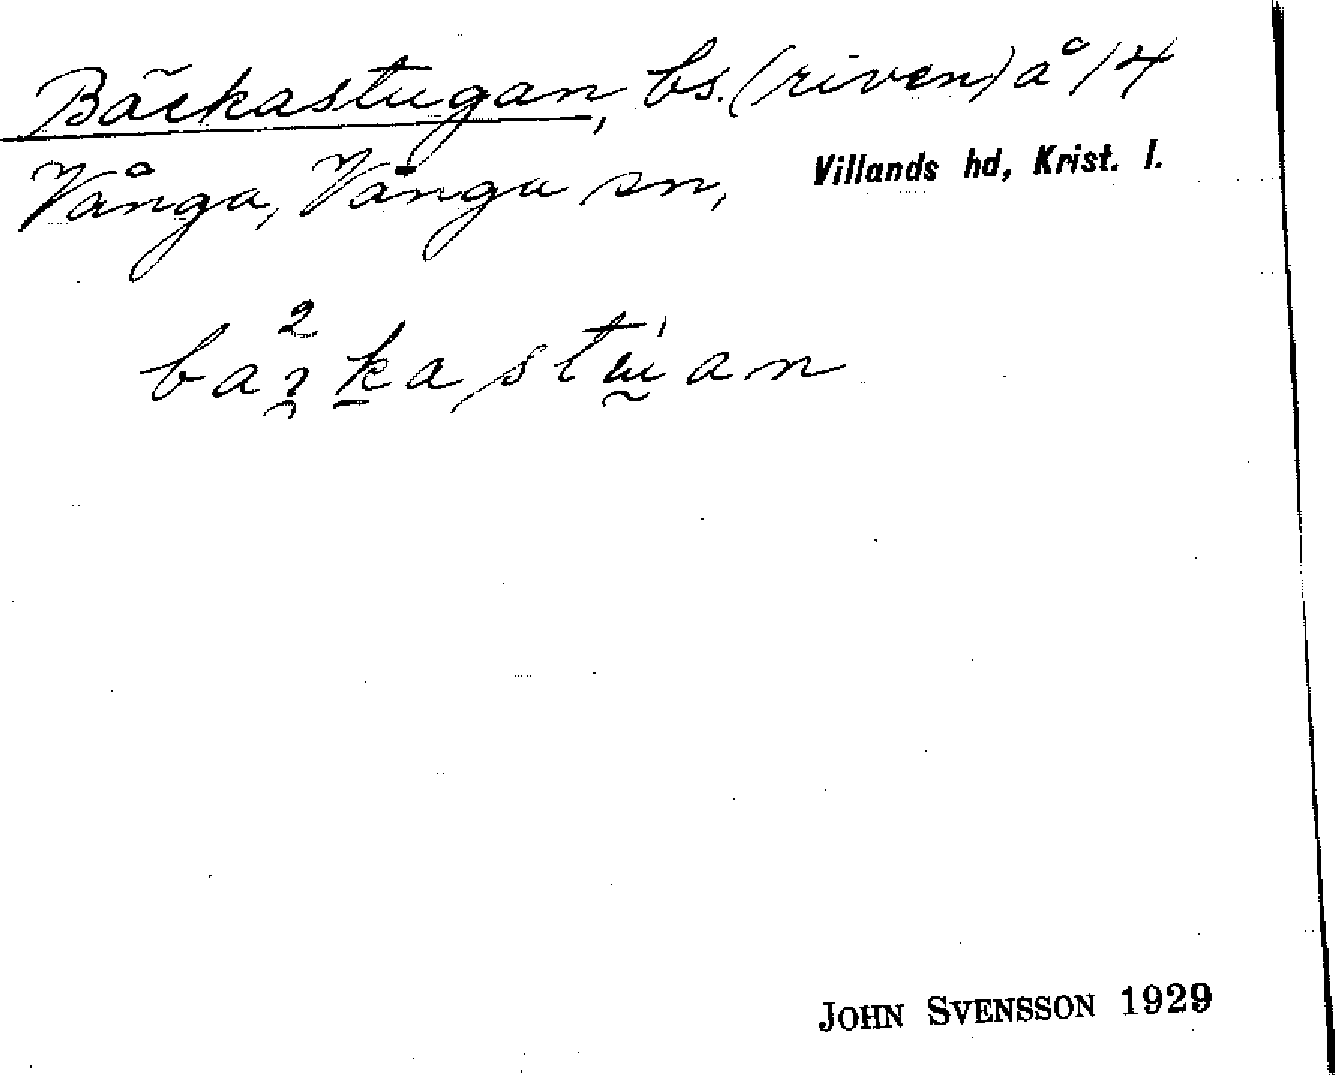 Bäckastugan, bs. (riven) å 1/4
Vånga, Vånga sn, Villands hd, Krist. l.
JOHN SVENSSON 1929